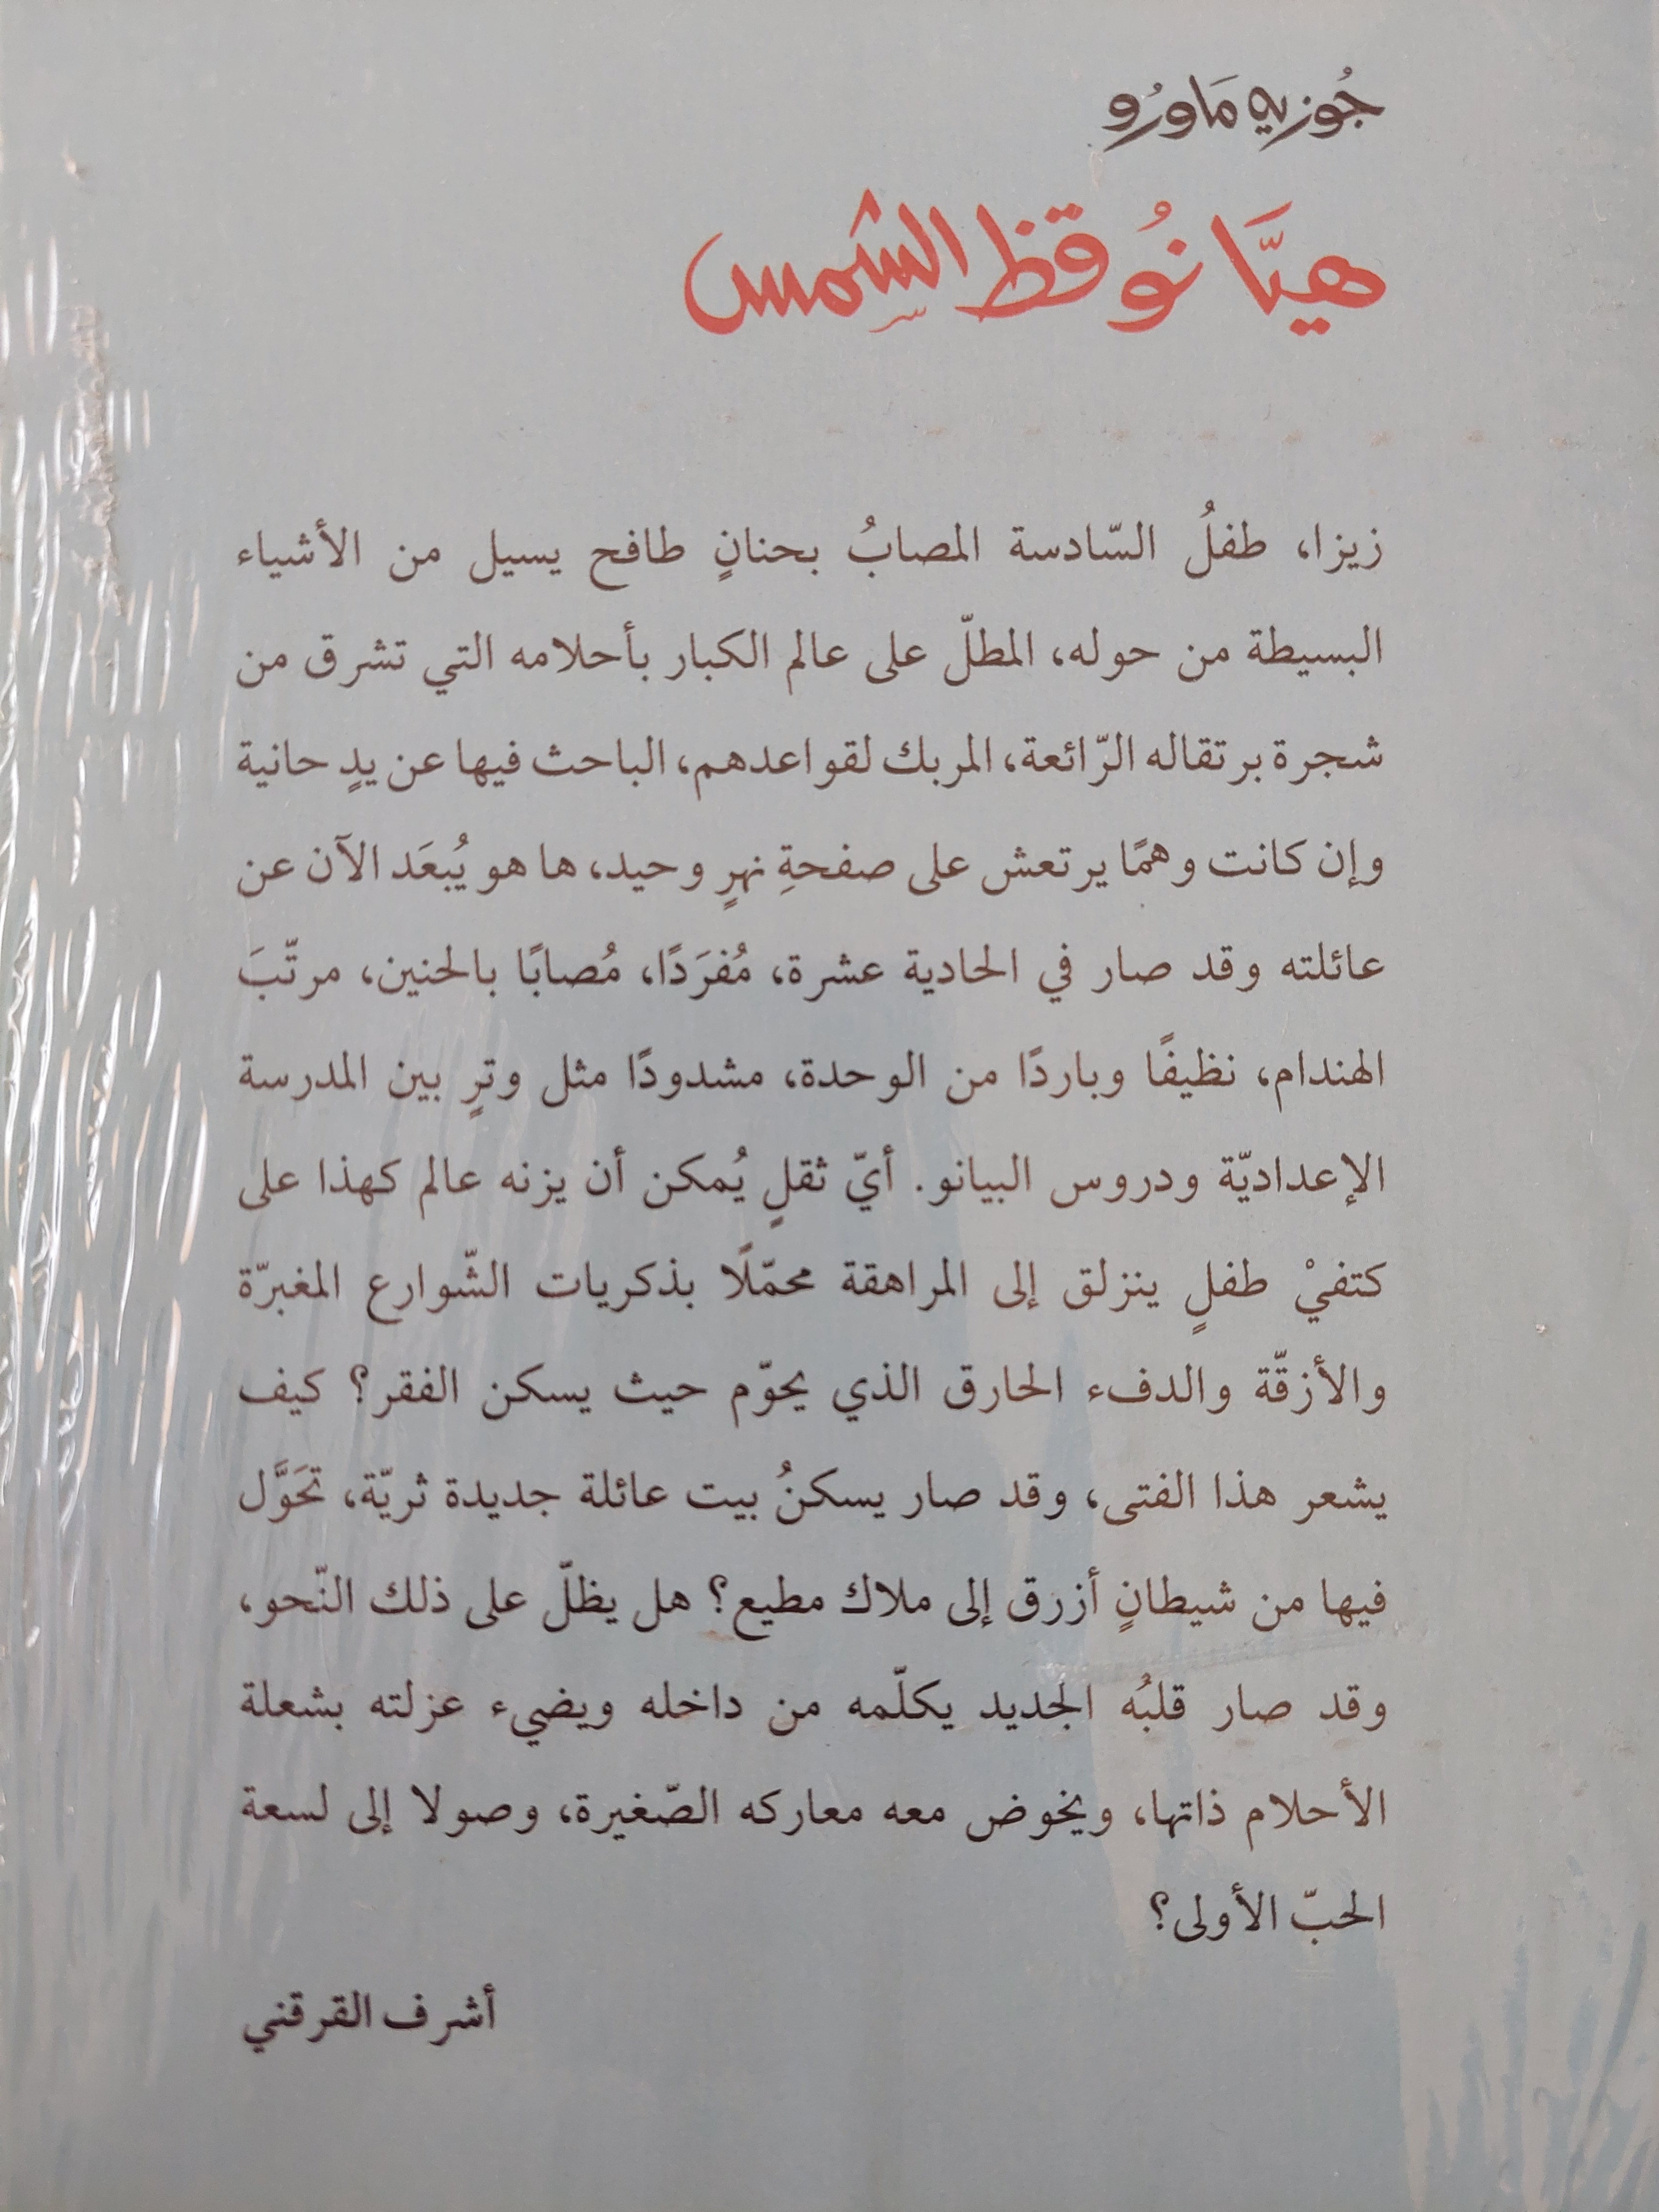 جُوزيه مَاورُو
هيَّا نُوقظ الشّمس
زيزا، طفلُ السّادسة المصابُ بحنانٍ طافح يسيل من الأشياء
البسيطة من حوله، المطلّ على عالم الكبار بأحلامه التي تشرق من
شجرة برتقاله الرّائعة، المربك لقواعدهم، الباحث فيها عن يدٍ حانية
وإن كانت وهمًا يرتعش على صفحةِ نهرٍ وحيد، ها هو يُبعَد الآن عن
عائلته وقد صار في الحادية عشرة، مُفرَدًا، مُصابًا بالحنين، مرتّبَ
الهندام، نظيفًا وباردًا من الوحدة، مشدودًا مثل وترٍ بين المدرسة
الإعداديّة ودروس البيانو. أيّ ثقلٍ يُمكن أن يزنه عالم كهذا على
كتفيْ طفلٍ ينزلق إلى المراهقة محمّلًا بذكريات الشّوارع المغبرّة
والأزقّة والدفء الحارق الذي يحوّم حيث يسكن الفقر؟ كيف
يشعر هذا الفتى، وقد صار يسكنُ بيت عائلة جديدة ثريّة، تحَوَّل
فيها من شيطانٍ أزرق إلى ملاك مطيع؟ هل يظلّ على ذلك النّحو،
وقد صار قلبُه الجديد يكلّمه من داخله ويضيء عزلته بشعلة
الأحلام ذاتها، ويخوض معه معاركه الصّغيرة، وصولا إلى لسعة
الحبّ الأولى؟
أشرف القرقني